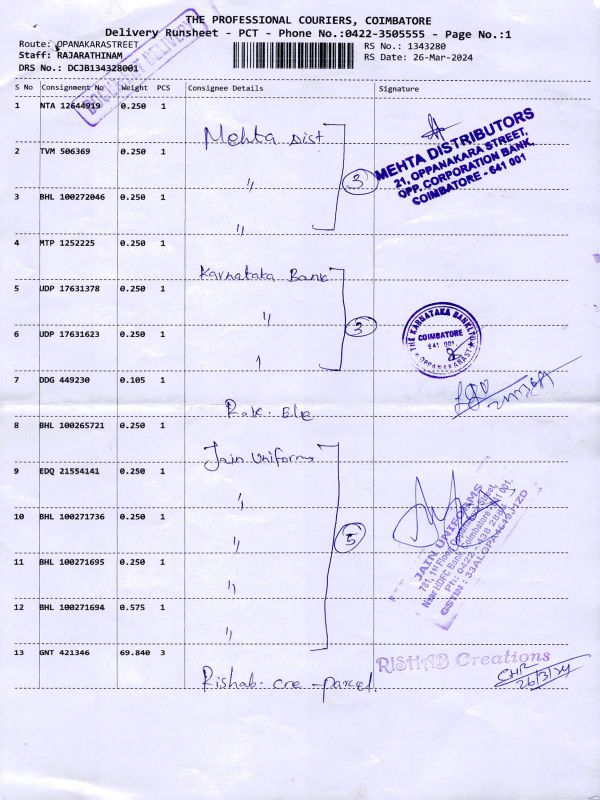 THE PROFESSIONAL COURIERS, COIMBATORE
Delivery Runsheet - PCT - Phone No.:0422-3505555 - Page No.:1
Route: OPPANAKARASTREET
RS No.: 1343280
Staff: RAJARATHINAM
RS Date: 26-Mar-2024
DRS No.: DCJB134328001
S No Consignment No Weight PCS Consignee Details Signature
1 NTA 12644919 0.250 1
Mehta Dist
MEHTA DISTRIBUTORS
21, OPPANAKARA STREET,
OPP. CORPORATION BANK,
COIMBATORE - 641 001
2 TVM 506369 0.250 1
"
3
3 BHL 100272046 0.250 1
"
4 MTP 1252225 0.250 1
Karnataka Bank
5 UDP 17631378 0.250 1
"
3
THE KARNATAKA BANK LTD
COIMBATORE
641 001
6 UDP 17631623 0.250 1
"
7 DDG 449230 0.105 1
8 BHL 100265721 0.250 1
Jain Uniforms
9 EDQ 21554141 0.250 1
"
10 BHL 100271736 0.250 1
"
5
JAIN UNIFORMS
781, 1st Floor, Oppanakara Street,
Near HDFC Bank, Coimbatore - 641 001.
11 BHL 100271695 0.250 1
"
12 BHL 100271694 0.575 1
"
13 GNT 421346 69.840 3
Rishab. cre - parcel.
RISHAB Creations
26/3/24